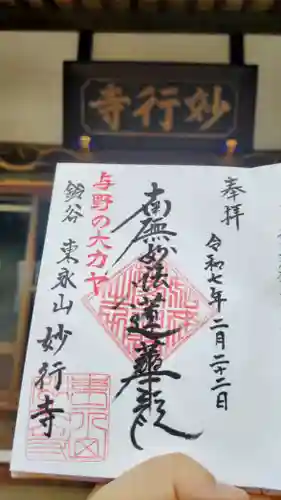 寺行妙
奉拝
令和七年二月二十二日
南無妙法蓮華経
与野の大カヤ
鈴谷 東永山 妙行寺